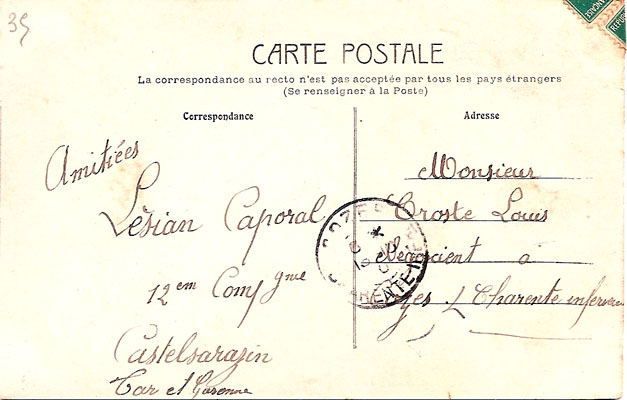 35
CARTE POSTALE
La correspondance au recto n'est pas acceptée par tous les pays étrangers
(Se renseigner à la Poste)
Correspondance
Adresse
Amitiées
Lésian Caporal
12em Compgnie
Castelsarazin
Tar et Garonne
Monsieur
Louis
Negocient a
Charente inferieure